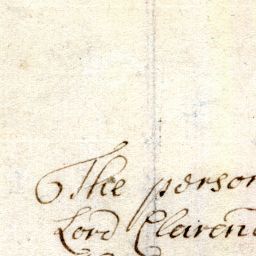 The person
Lord Claren